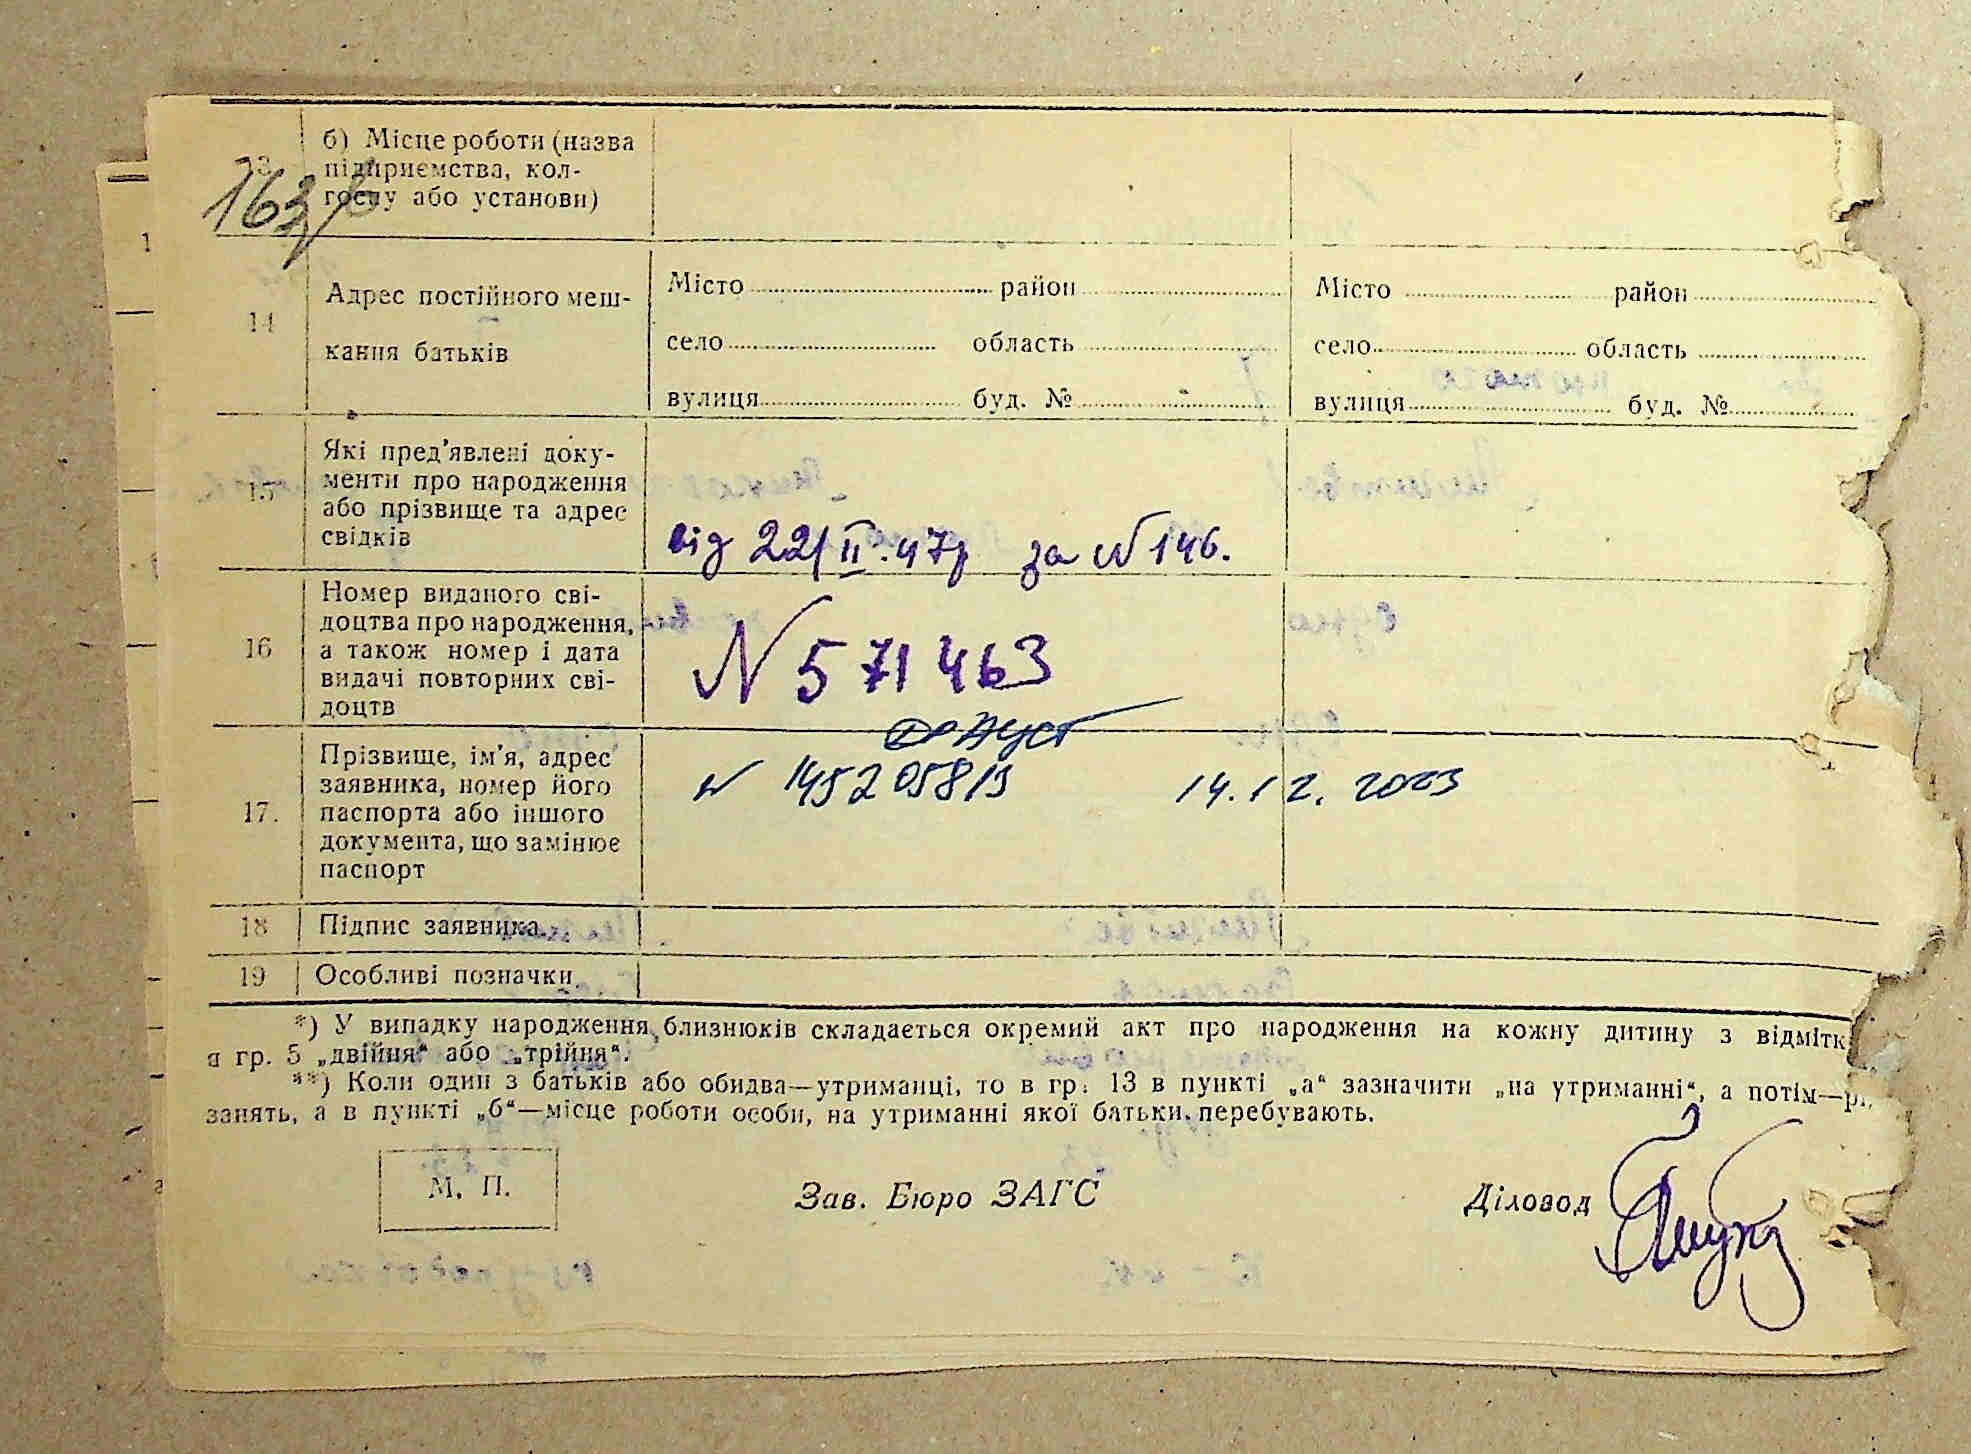 13
б) Місце роботи (назва
підприємства, кол-
госпу або установи)
163
14
Адрес постійного меш-
кання батьків
Місто район
село область
вулиця буд. №
Місто район
село область
вулиця буд. №
15
Які пред'явлені доку-
менти про народження
або прізвище та адрес
свідків
від 22/II.47р за N 146.
16
Номер виданого сві-
доцтва про народження,
а також номер і дата
видачі повторних сві-
доцтв
N 571463
17.
Прізвище, ім'я, адрес
заявника, номер його
паспорта або іншого
документа, що замінює
паспорт
N 145205819 14.12.2023
18 Підпис заявника.
19 Особливі позначки.
*) У випадку народження близнюків складається окремий акт про народження на кожну дитину з відмітк
в гр. 5 „двійня“ або „трійня“.
**) Коли один з батьків або обидва—утриманці, то в гр. 13 в пункті „а“ зазначити „на утриманні“, а потім—р
занять, а в пункті „б“—місце роботи особи, на утриманні якої батьки перебувають.
М. П.
Зав. Бюро ЗАГС
Діловод